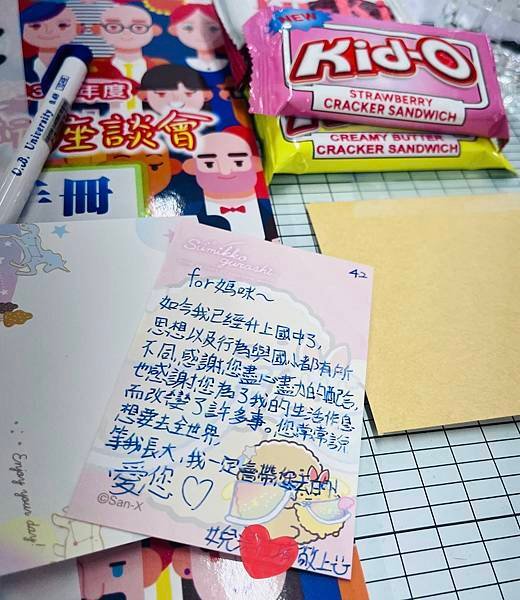 NEW
Kid-O
STRAWBERRY
CRACKER SANDWICH
CREAMY BUTTER
CRACKER SANDWICH
年度
座談會
冊
D.B. University
Sumikko
gurashi
42
for媽咪~
如今我已經升上國中了,
思想以及行為與國小都有所
不同,感謝您盡心盡力的配合,
也感謝您為了我的生活作息
而改變了許多事。您常常說
想要去全世界
等我長大,我一定會帶您去的!
愛您♡
©San-X
敬上
Enjoy your day!